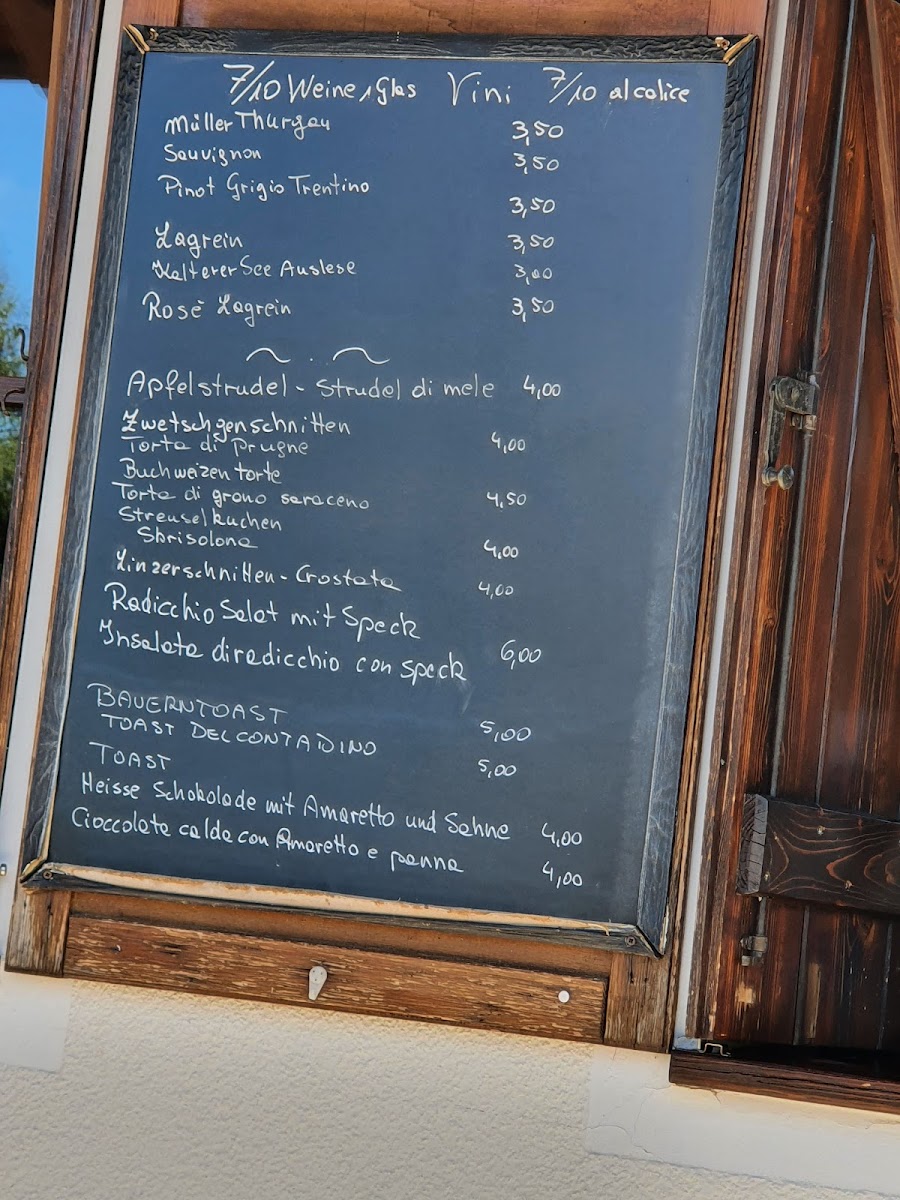 7/10 Weine 1 Glas Vini 7/10 alcolice
Müller Thurgau 3,50
Sauvignon 3,50
Pinot Grigio Trentino
3,50
Lagrein 3,50
Kalterer See Auslese 3,00
Rosè Lagrein 3,50
Apfelstrudel - Strudel di mele 4,00
Zwetschgenschnitten
Torta di prugne 4,00
Buchweizentorte
Torta di grano saraceno 4,50
Streuselkuchen
Sbrisolona 4,00
Linzerschnitten - Crostata 4,00
Radicchio Salat mit Speck
Insalata di radicchio con speck 6,00
BAUERNTOAST 5,00
TOAST DEL CONTADINO
TOAST 5,00
Heisse Schokolade mit Amaretto und Sahne 4,00
Cioccolata calda con Amaretto e panna 4,00